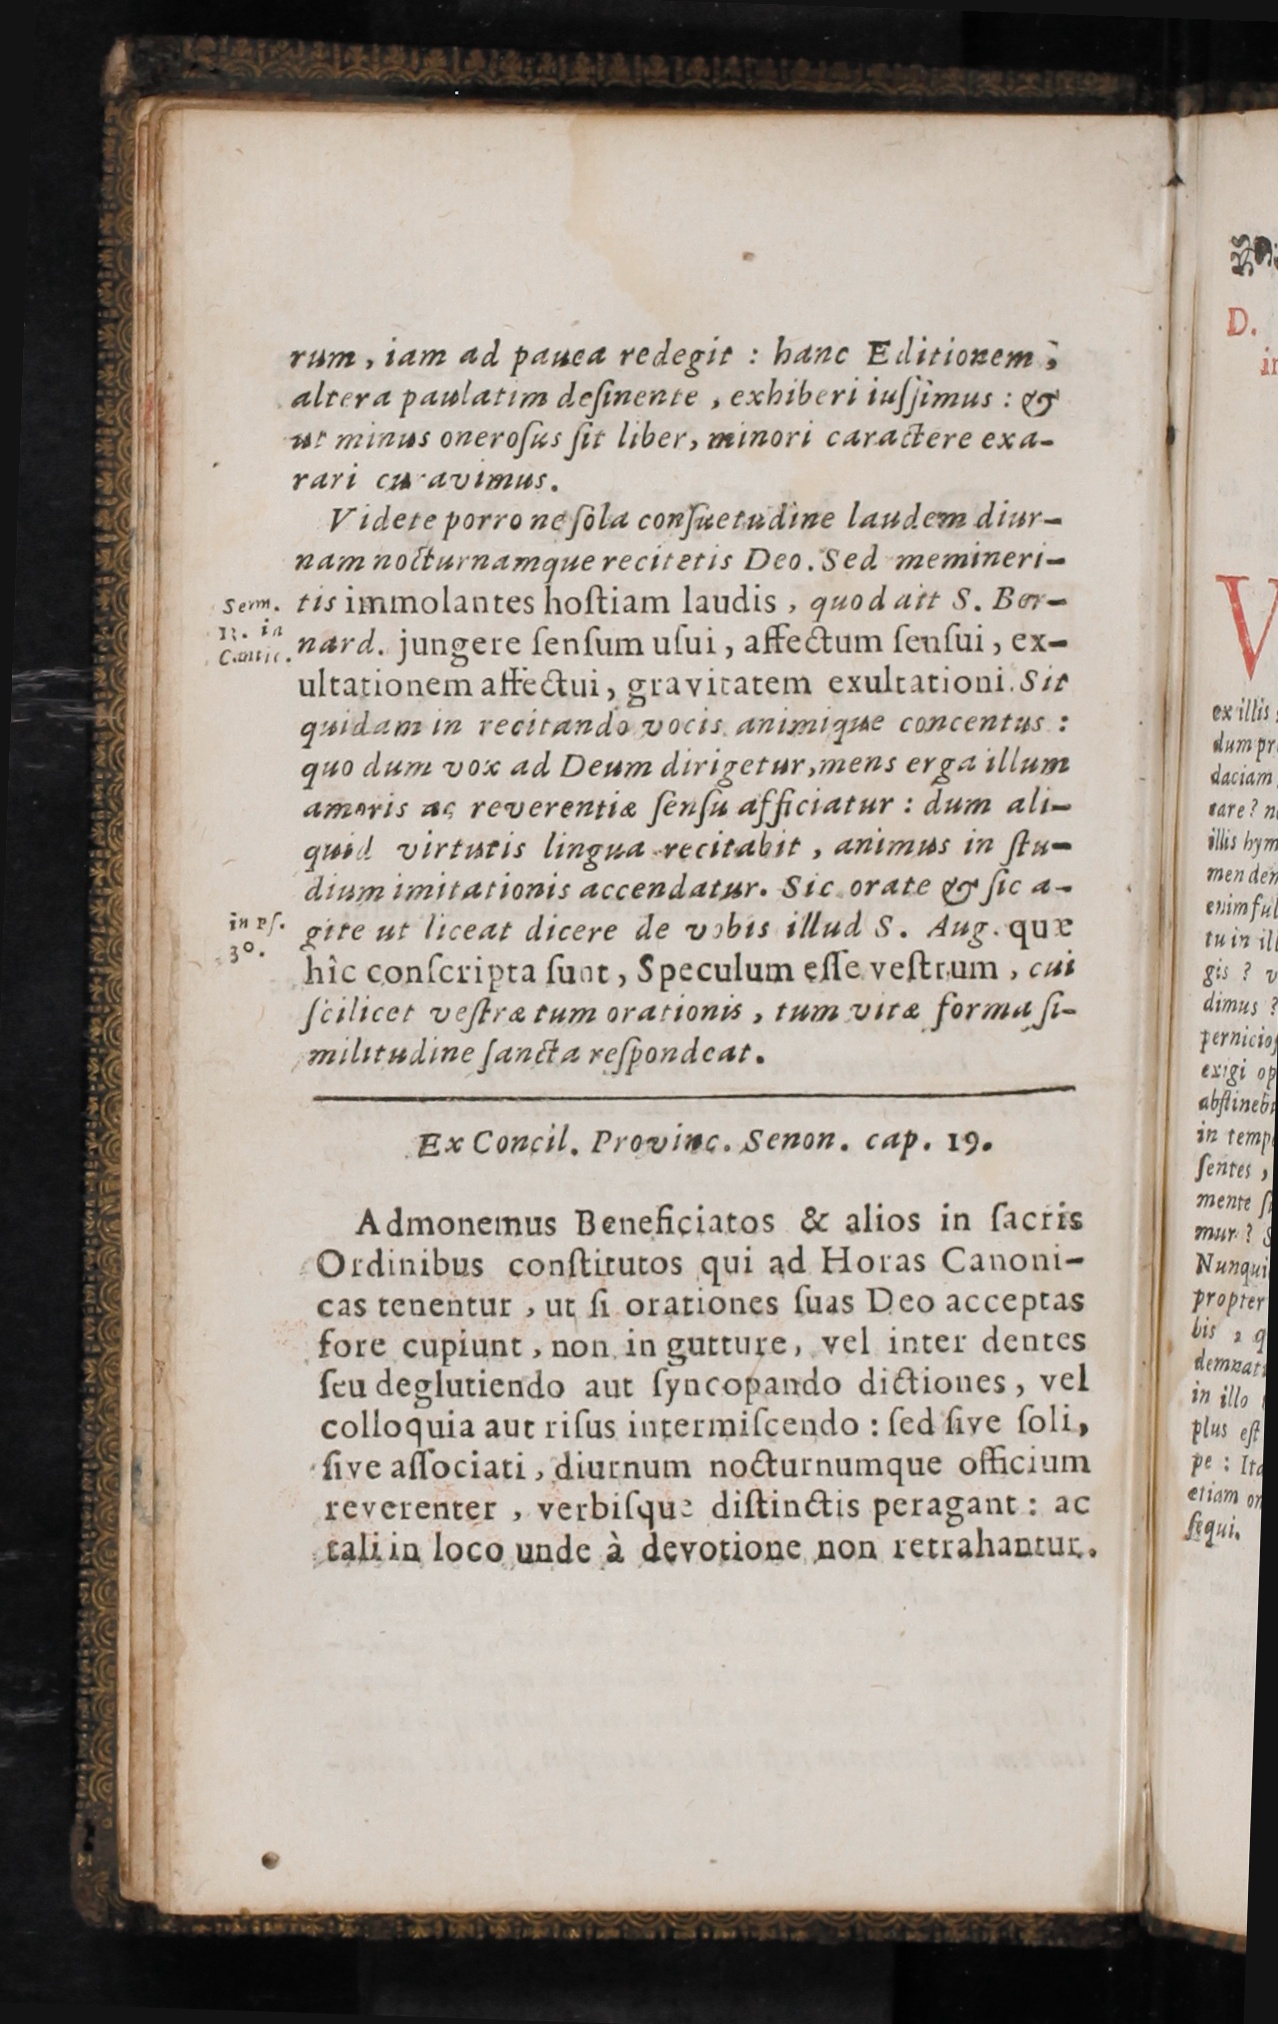 rum, iam ad pauca redegit : hanc Editionem,
altera paulatim deſinente, exhiberi iuſſimus : &
ut minus oneroſus ſit liber, minori caractere exa-
rari curavimus.
Videte porro ne ſola conſuetudine laudem diur-
nam nocturnamque recitetis Deo. Sed memineri-
Serm. tis immolantes hoſtiam laudis, quod ait S. Ber-
in nard. jungere ſenſum uſui, affectum ſenſui, ex-
Cantic.
ultationem affectui, gravitatem exultationi. Sit
quidam in recitando vocis animique concentus :
quo dum vox ad Deum dirigetur, mens erga illum
amoris ac reverentiæ ſenſu afficiatur : dum ali-
quid virtutis lingua recitabit, animus in ſtu-
dium imitationis accendatur. Sic orate & ſic a-
in Pſ. gite ut liceat dicere de vobis illud S. Aug. quæ
30. hîc conſcripta ſunt, Speculum eſſe veſtrum, cui
ſcilicet veſtræ tum orationis, tum vitæ forma ſi-
militudine ſancta reſpondeat.
Ex Concil. Provinc. Senon. cap. 19.
Admonemus Beneficiatos & alios in ſacris
Ordinibus conſtitutos qui ad Horas Canoni-
cas tenentur, ut ſi orationes ſuas Deo acceptas
fore cupiunt, non in gutture, vel inter dentes
ſeu deglutiendo aut ſyncopando dictiones, vel
colloquia aut riſus intermiſcendo : ſed ſive ſoli,
ſive aſſociati, diurnum nocturnumque officium
reverenter, verbiſque diſtinctis peragant : ac
tali in loco unde à devotione non retrahantur.
D.
V
ex illis
daciam
illis hym
gis ? v
dimus ?
exigi
ſentes,
mente
mur ?
propter
bis,
in illo
plus eſt
pe : Ita
etiam
ſequi.